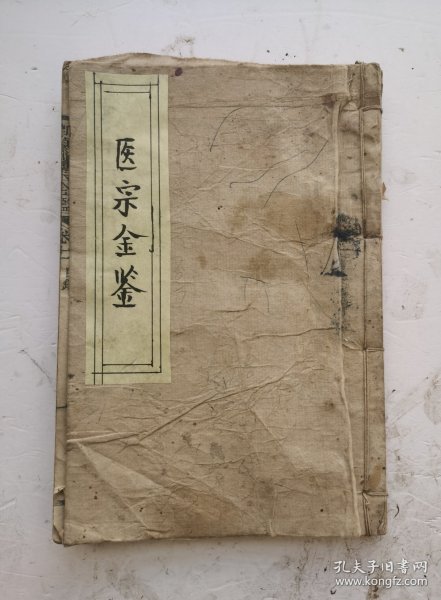 医宗金鉴
孔夫子旧书网
www.kongfz.com